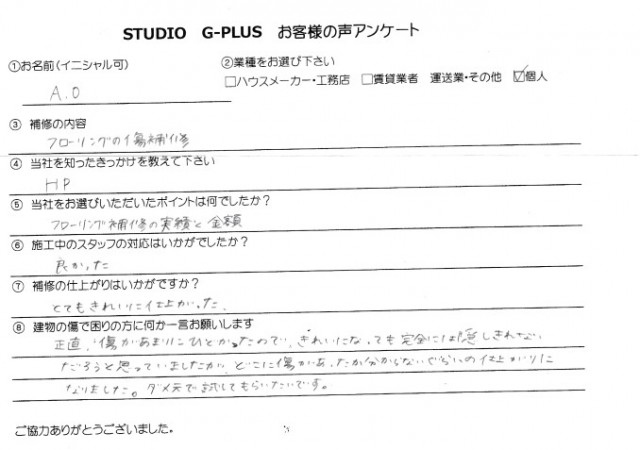 STUDIO G-PLUS お客様の声アンケート
①お名前(イニシャル可)
A.O
②業種をお選び下さい
□ハウスメーカー・工務店 □賃貸業者 運送業・その他 ☑個人
③ 補修の内容
フローリングの傷補修
④ 当社を知ったきっかけを教えて下さい
HP
⑤ 当社をお選びいただいたポイントは何でしたか?
フローリング補修の実績と金額
⑥ 施工中のスタッフの対応はいかがでしたか?
良かった
⑦ 補修の仕上がりはいかがですか?
とてもきれいに仕上がった。
⑧ 建物の傷で困りの方に何か一言お願いします
正直、傷があまりにひどかったので、きれいになっても完全には隠しきれない
だろうと思っていましたが、どこに傷があったか分からないぐらいの仕上がりに
なりました。ダメ元で試してもらいたいです。
ご協力ありがとうございました。